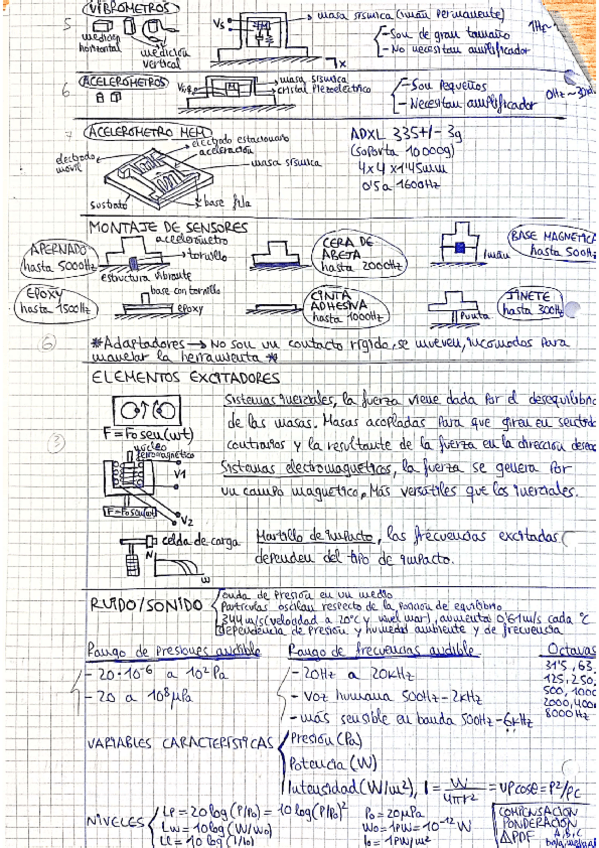 VIBROMETROS
5
medición
horizontal
medición
vertical
Vs
masa sísmica (imán permanente)
- Son de gran tamaño
- No necesitan amplificador
x
1Hz~
ACELEROMETROS
6
masa sísmica
cristal Piezoeléctrico
- Son Pequeños
- Necesitan amplificador
0Hz~
7
ACELEROMETRO MEM
electrodo estacionario
aceleración
electrodo
móvil
masa sísmica
sustrato
base fija
ADXL 335+/- 3g
(soporta 10000g)
4x4x1'45mm
0'5 a 1600Hz
MONTAJE DE SENSORES
APERNADO
hasta 5000Hz
acelerómetro
tornillo
estructura vibrante
CERA DE
ABEJA
hasta 2000Hz
Imán
BASE MAGNETICA
hasta 500Hz
EPOXY
hasta 1500Hz
base con tornillo
epoxy
CINTA
ADHESIVA
hasta 1000Hz
Punta
JINETE
hasta 300Hz
6
*Adaptadores → No son un contacto rígido, se mueven, incomodos para
manejar la herramienta *
ELEMENTOS EXCITADORES
F=Fo sen(wt)
Sistemas inerciales, la fuerza viene dada por el desequilibrio
de las masas. Masas acopladas para que giren en sentido
contrarios y la resultante de la fuerza en la dirección
3
núcleo
ferromagnético
V1
F=Fosen(wt)
V2
Sistemas electromagneticos, la fuerza se genera por
un campo magnetico, Más versátiles que los inerciales.
celda de carga
N
w
Martillo de impacto, las frecuencias excitadas
dependen del tipo de impacto.
RUIDO/SONIDO
onda de Presión en un medio
Partículas oscilan respecto de la posición de equilibrio
344m/s (velocidad a 20°C y nivel mar), aumenta 0'61m/s cada °C
dependencia de Presión y humedad ambiente y de frecuencia
Rango de presiones audible
- 20·10⁻⁶ a 10² Pa
- 20 a 10⁸ μPa
Rango de frecuencias audible
- 20Hz a 20KHz
- Voz humana 500Hz-2kHz
- más sensible en banda 500Hz-6kHz
Octavas
31'5, 63,
125, 250,
500, 1000
2000, 400
8000 Hz
VARIABLES CARACTERÍSTICAS
Presión (Pa)
Potencia (W)
Intensidad (W/m²), I = W/4πr² = UPcosθ = P²/ρc
NIVELES
LP = 20log(P/Po) = 10log(P/Po)²
Lw = 10log(W/Wo)
LI = 10log(I/Io)
Po = 20μPa
Wo = 1PW = 10⁻¹² W
Io = 1PW/m²
COMPENSACIÓN
PONDERACIÓN
△PDF
A, B, C